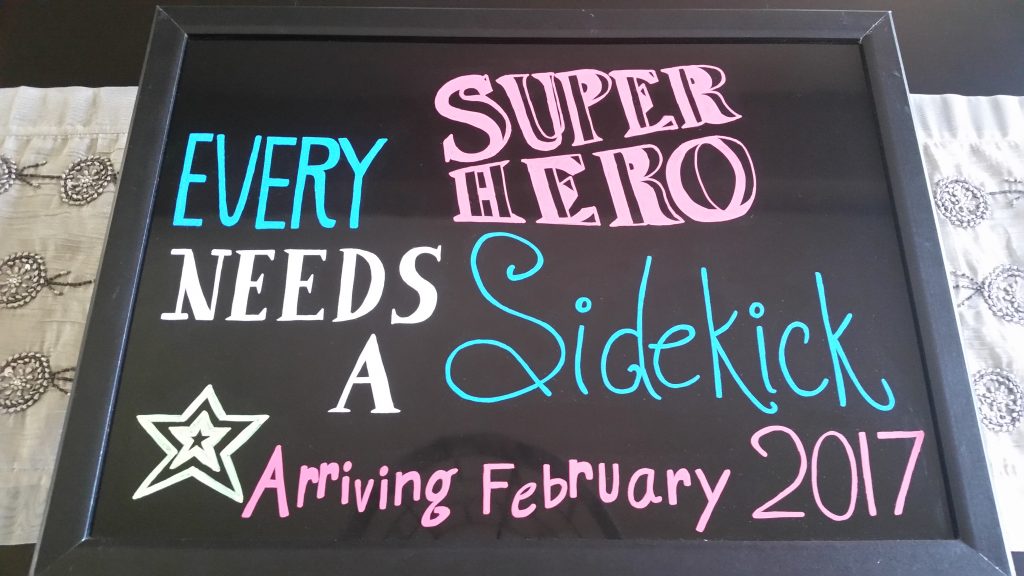 EVERY SUPER
HERO
NEEDS
A Sidekick
Arriving February 2017